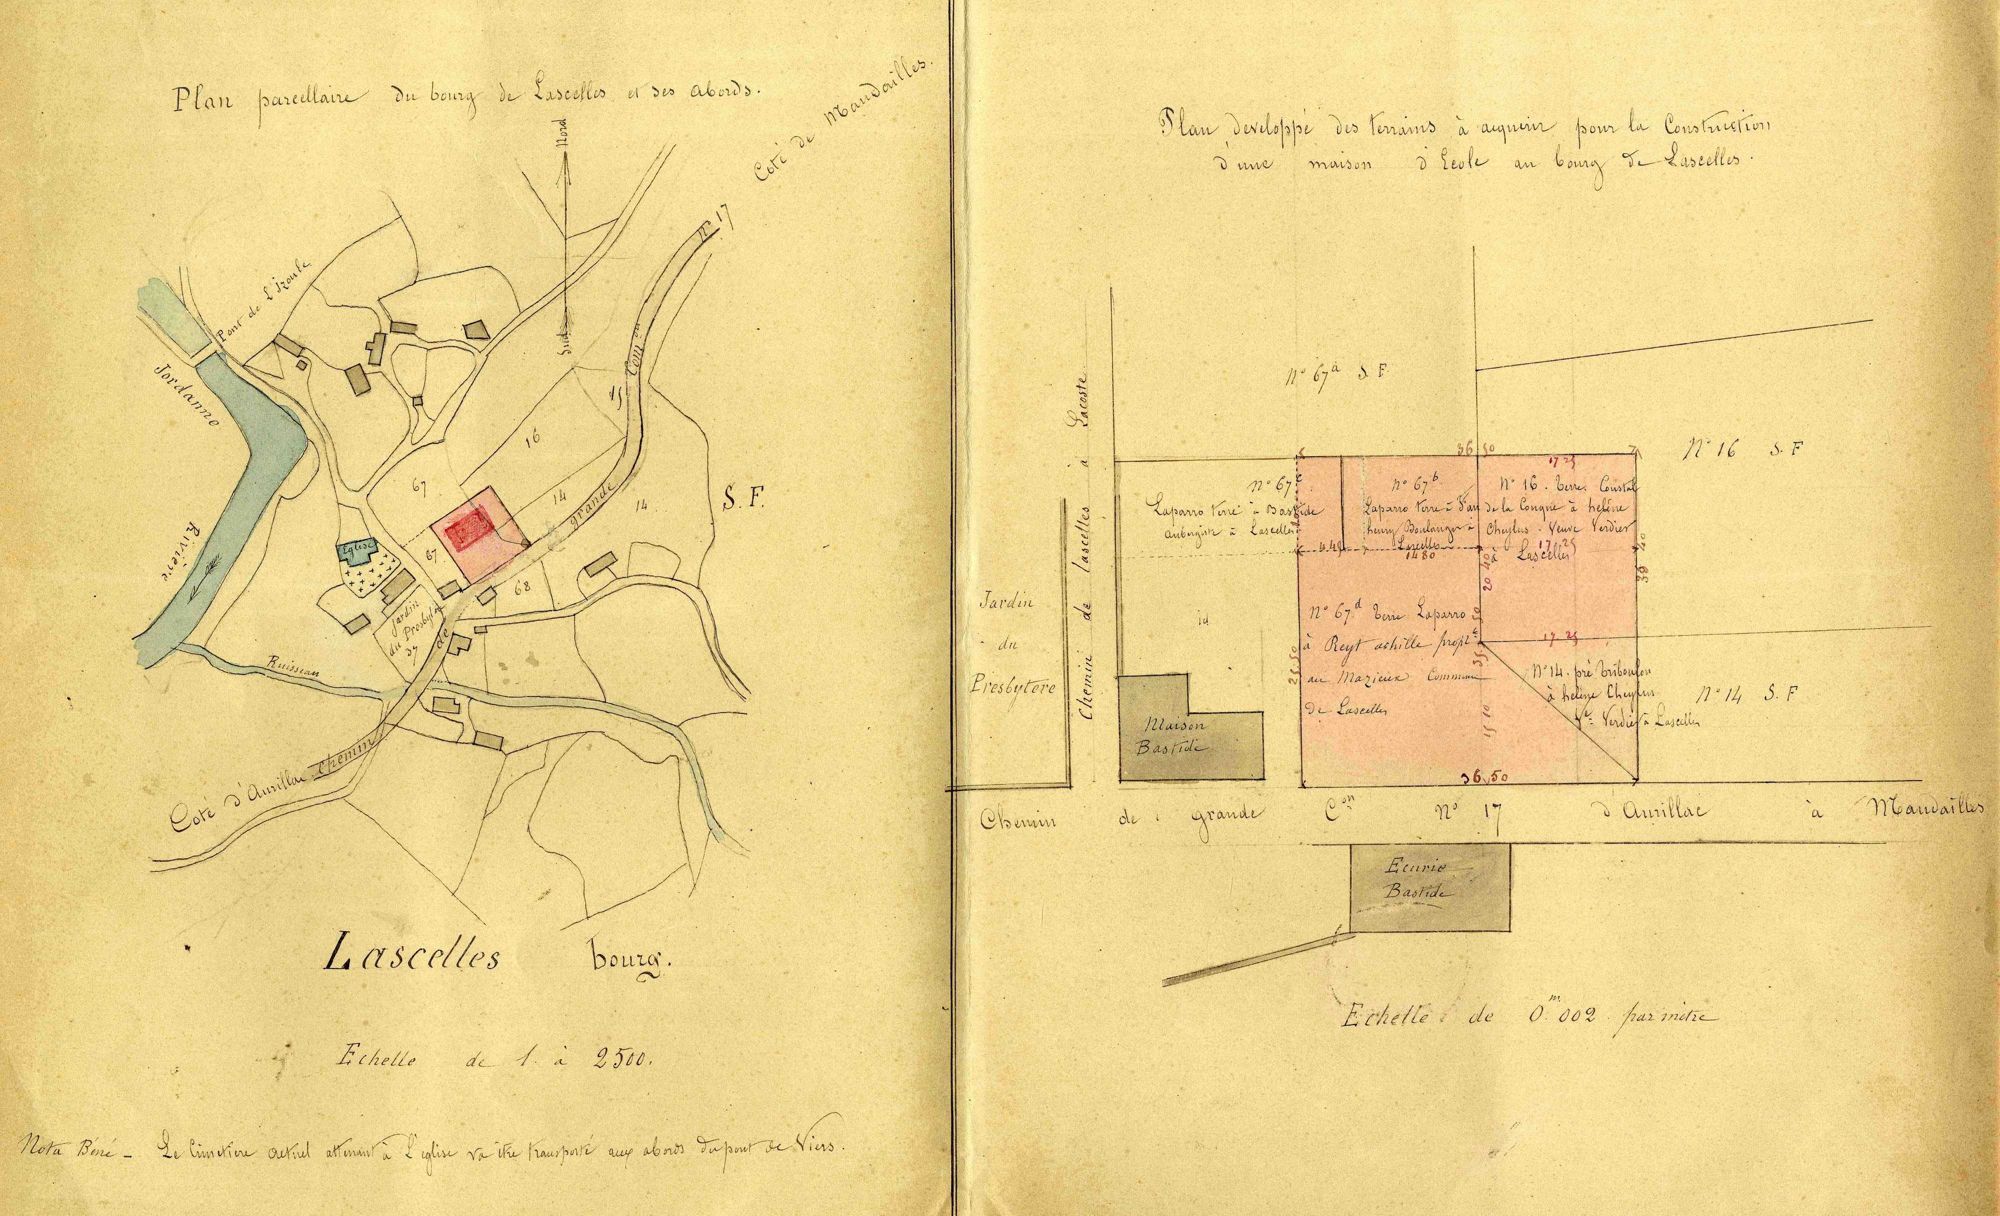 Plan parcellaire du bourg de Lascelles et ses abords.
Coté de Mandailles.
Nord
Sud
nº 17
Com.on
Pont de L'Izoule
Jordanne
15
16
67
14
14
grande
S. F.
Eglise
67
68
Rivière
Jardin
du Presbytère
37
de
Ruisseau
Chemin
Coté d'Aurillac
Lascelles bourg.
Echelle de 1. à 2500.
Nota Béné - Le Cimetière actuel attenant à L'église va être transporté aux abords du pont de Viers.
Plan développé des terrains à acquérir pour la Construction
d'une maison d'Ecole au bourg de Lascelles.
Nº 67a S F
Nº 16 S. F
36.50
17.25
Nº 67c
Laparro terre à Bastide
aubergiste à Lascelles
Nº 67b
Laparro terre à Jean
henry Boulanger à
Lascelles
Nº 16. Terre Coustal
de la Congue à helène
Cheylus. Veuve Verdier
à Lascelles
4.40
14 80
17.25
20 40
39 40
Chemin de Lascelles à Lacoste
Jardin
du
Presbytère
id
Nº 67d Terre Laparro
à Reyt achille propre
au Mazieux Commune
de Lascelles
25.50
17.25
Nº 14. pré Triboulou
à helène Cheylus
Ve Verdier à Lascelles
Nº 14 S. F
15 10
36.50
Maison
Bastide
Chemin de grande Con Nº 17 d'Aurillac à Mandailles
Ecurie
Bastide
Echelle de 0m.002 par mètre